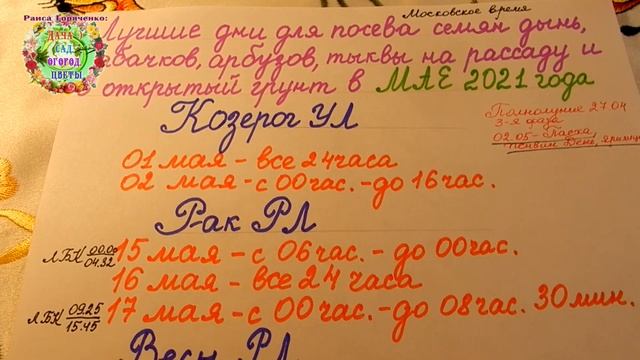 Раиса Горяченко:
ДАЧА
САД
ОГОРОД
ЦВЕТЫ
Московское время
Лучшие дни для посева семян дынь,
бачков, арбузов, тыквы на рассаду и
открытый грунт в МАЕ 2021 года
Полнолуние 27.04
3-я фаза
02.05 - Пасха,
Козерог УЛ
01 мая - все 24 часа
02 мая - с 00 час. - до 16 час.
Рак РЛ
ЛБК 00.00
04.32
15 мая - с 06 час. - до 00 час.
16 мая - все 24 часа
ЛБК 09.25
15.45
17 мая - с 00 час. - до 08 час. 30 мин.
Весы РЛ